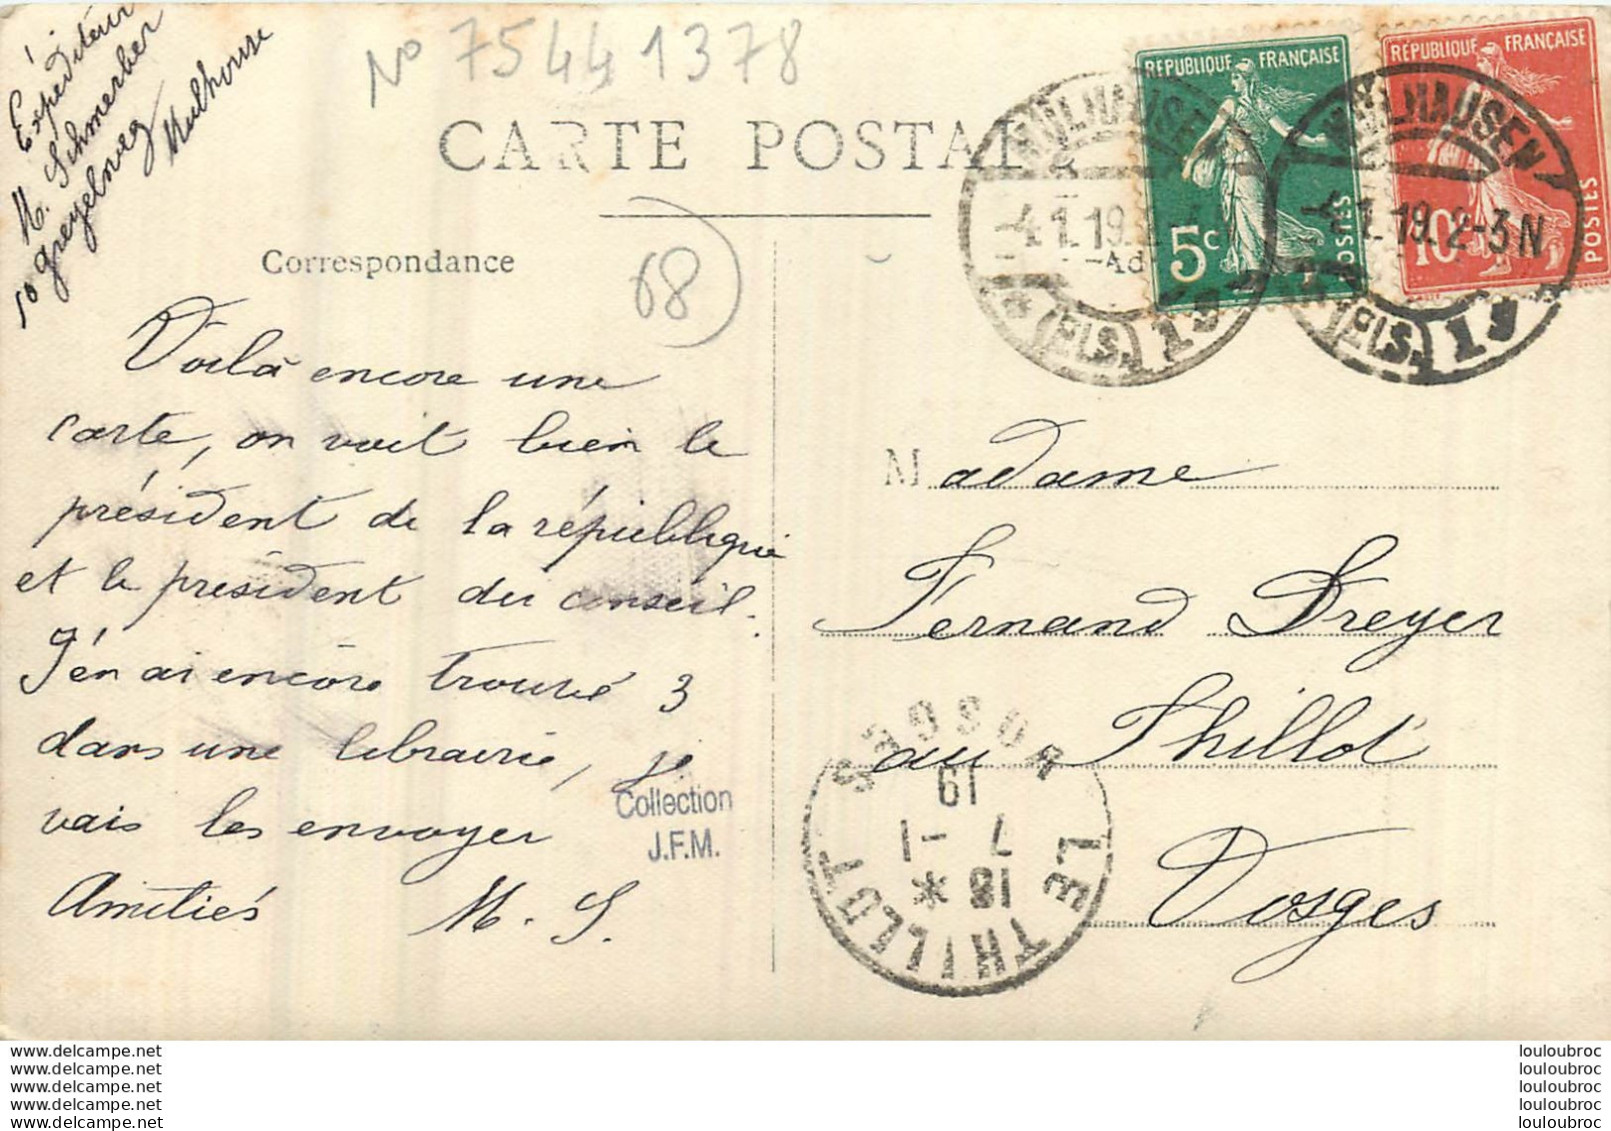 Expéditeur
M. Schmerber
10 Greyelweg
Mulhouse
No 75441378
CARTE POSTALE
68
Correspondance
Voilà encore une
carte, on voit bien le
président de la république
et le président du conseil.
J'en ai encore trouvé 3
dans une librairie, je
vais les envoyer
Amitiés M. S.
Collection
J.F.M.
RÉPUBLIQUE FRANÇAISE
5c
POSTES
RÉPUBLIQUE FRANÇAISE
10c
POSTES
MÜLHAUSEN
4.1.19.
(Els.) 1
MÜLHAUSEN
4.1.19. 2-3N
(Els.) 1
Madame
Fernand Dreyer
au Thillot
Vosges
LE THILLOT
VOSGES
18 *
7 -1
19
www.delcampe.net
www.delcampe.net
www.delcampe.net
www.delcampe.net
www.delcampe.net
louloubroc
louloubroc
louloubroc
louloubroc
louloubroc